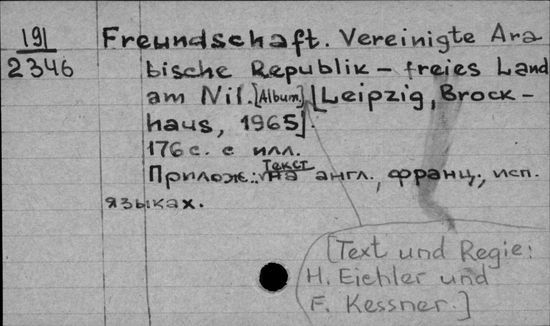 191
2346
Freundschaft. Vereinigte Ara
bische Republik – freies Land
am Nil. [Album] [Leipzig, Brock-
haus, 1965].
176 с. с илл.
Прилож.: Текст на англ., франц., исп.
языках.
[Text und Regie:
H. Eichler und
F. Kessner.]